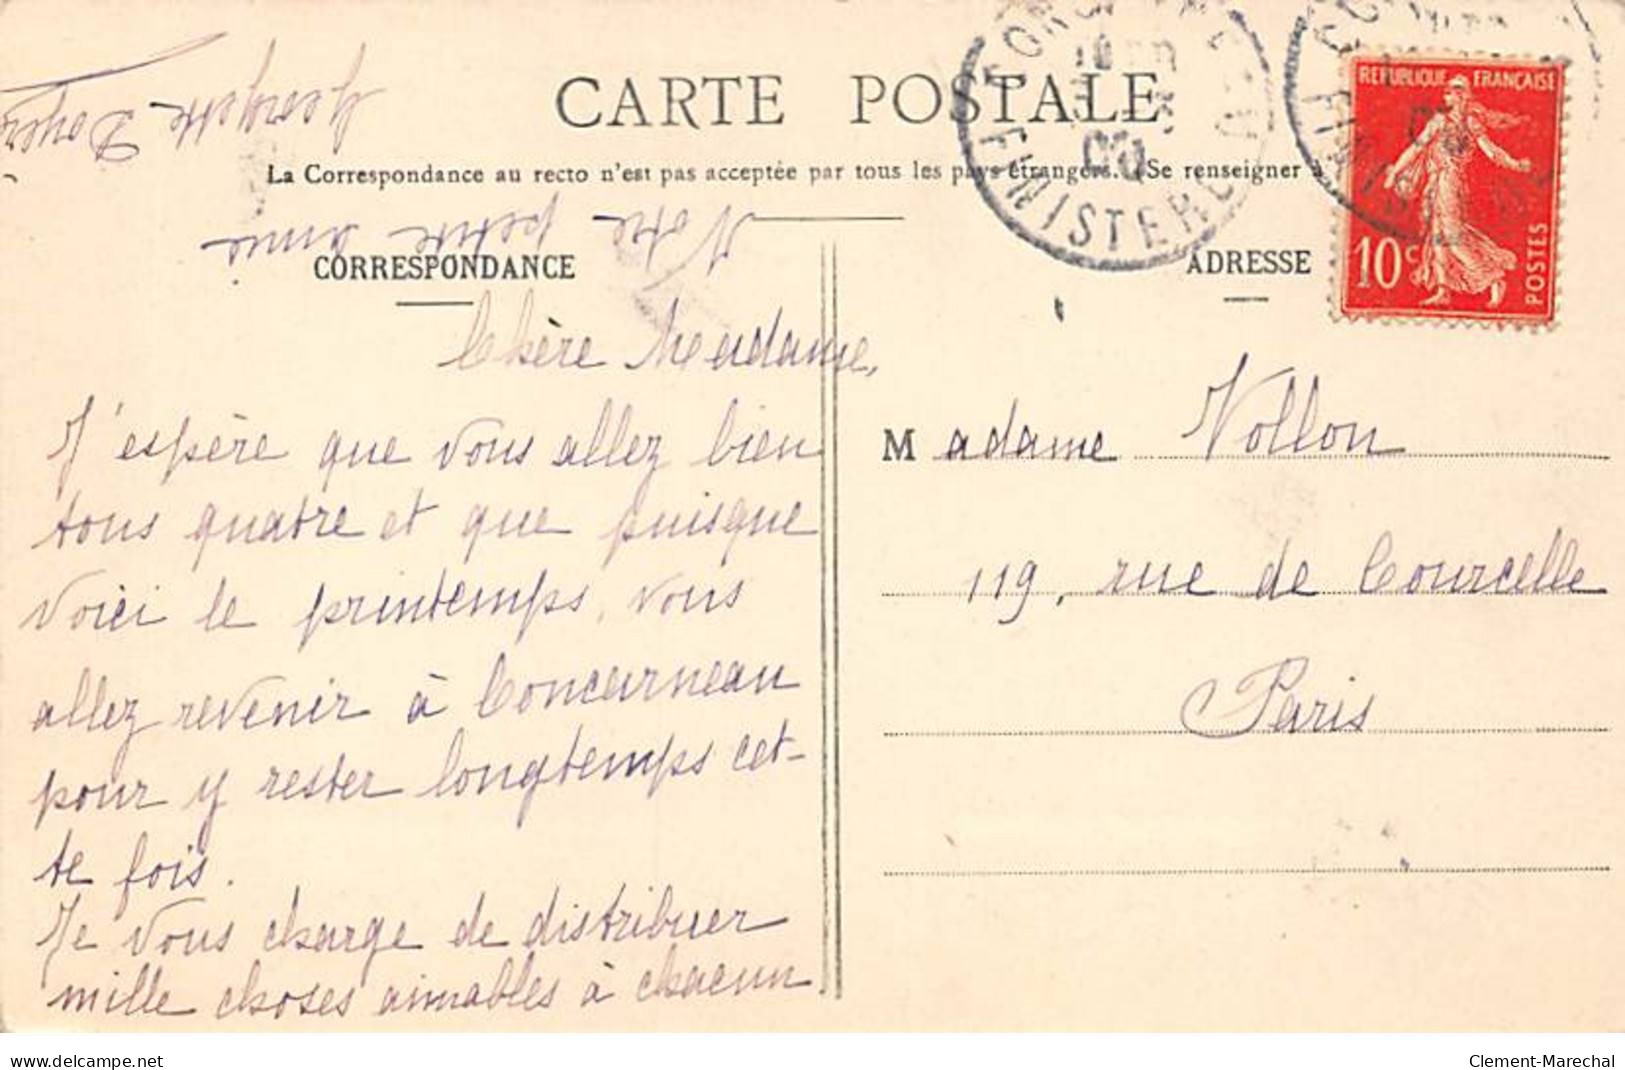 CARTE POSTALE
La Correspondance au recto n'est pas acceptée par tous les pays étrangers. (Se renseigner à
CORRESPONDANCE
ADRESSE
REPUBLIQUE FRANÇAISE
10 c
POSTES
FINISTERE
Chère Madame,
J'espère que vous allez bien
tous quatre et que puisque
voici le printemps, vous
allez revenir à Concarneau
pour y rester longtemps cet-
te fois.
Je vous charge de distribuer
mille choses aimables à chacun
Votre petite amie
Georgette
Madame Vollon
119, rue de Courcelle
Paris
www.delcampe.net
Clement-Marechal